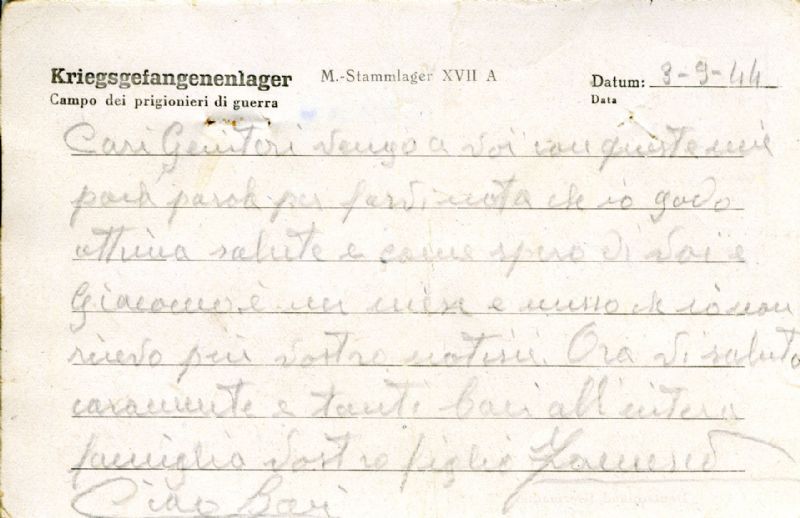 Kriegsgefangenenlager M.-Stammlager XVII A Datum: 3-9-44
Campo dei prigionieri di guerra Data
Cari Genitori vengo a voi con queste mie
poche parole per farvi nota che io godo
ottima salute e come spero di voi e
Giacomo è un mese e messo che io non
ricevo più vostre notisie. Ora vi saluto
caramente e tanti baci all'intera
famiglia vostro figlio
Ciao Baci